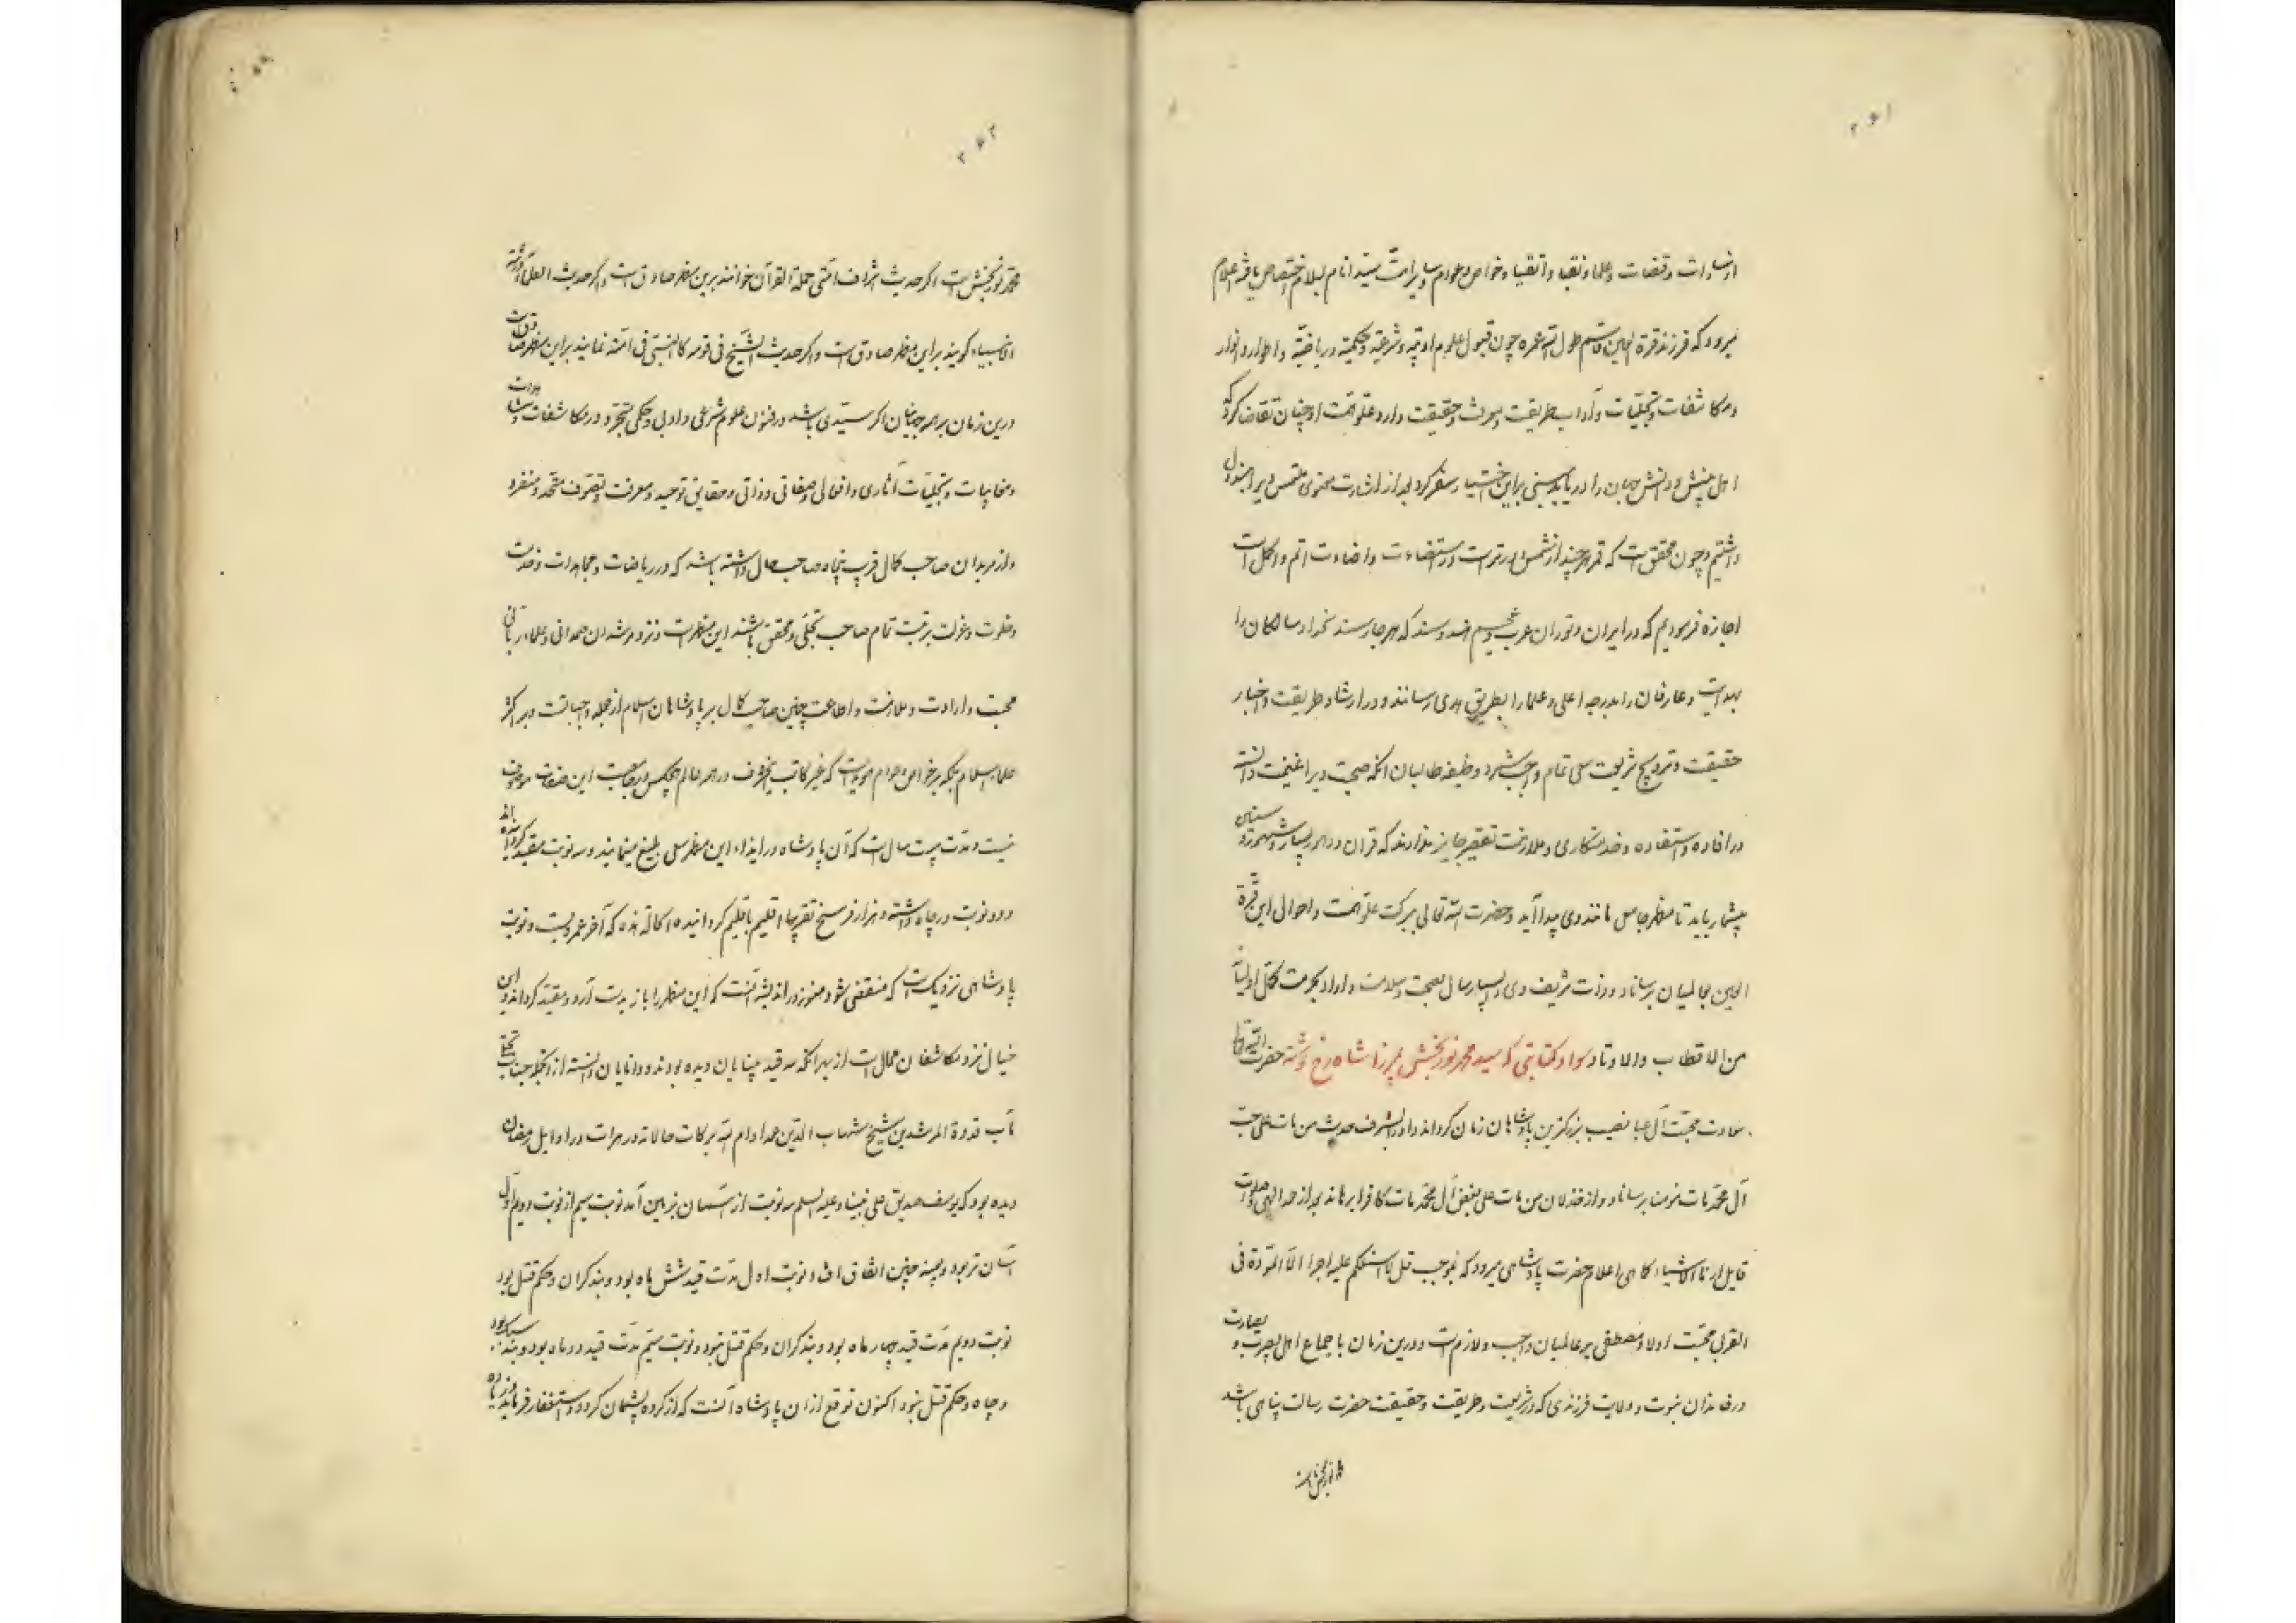 ۲۶۱
از سادات و قضات و علما و نقبا و اتقیا و خواص و عوام و سایر امت سید انام بسلام اختصاص یافته اعلام
میرود که فرزند قرة العین قاسم طول الله عمره چون قبول علوم ادبیه و شرعیه و حکمیه و ریاضیه و اطوار و انوار
و مکاشفات و تجلیات و آداب طریقت و معرفت حقیقت دارد علو همت او چنان تقاضا کرد که
اهل بینش و دانش جهان را دریابد بنابراین اختیار سفر کرد بعد از اشارت معنوی ملتمس ویرا مبذول
داشتیم و چون محقق است که قمر هر چند از شمس دورتر است در استضاءت و اضاءت اتم و اکمل است
اجازه فرمودیم که در ایران و توران و عرب و عجم و هند و سند که هر جا رسند سالکان را
بهدایت و عارفان را بدرجه اعلی و علما را بطریق هدی رسانند و در ارشاد طریقت و اخبار
حقیقت و ترویج شریعت سعی تمام واجب شمرد وظیفه طالبان آنکه صحبت ویرا غنیمت دانسته
در افاده و استفاده و خدمتکاری و ملازمت تقصیر جایز ندارند که قران و دهر بسیار و سنین و شهور
بیشمار باید تا مظهر جامع مانند وی پیدا آید و حضرت الله تعالی برکت علو همت و احوال این قرة
العین بعالمیان برساناد و ذات شریف وی را بسیار سال بصحت و سلامت داراد بحرمت کمل اولیائه
من الاقطاب والاوتاد سواد کتابتی که سید محمد نوربخش بمیرزا شاه رخ نوشته حضرت الله تعالی
سعادت محبت آل عبا نصیب بزرکترین پادشاهان زمان کرداند و او را بشرف حدیث من مات علی حب
آل محمد مات مؤمنا برساناد و از خذلان من مات علی بغض آل محمد مات کافرا برهاند بعد از حمد الهی و صلوات
قایل ارنا الاشیاء کما هی اعلام حضرت پادشاهی میرود که بموجب قل لا اسئلکم علیه اجرا الا المودة فی
القربی محبت اولاد مصطفی بر عالمیان واجب و لازم است و درین زمان باجماع اهل بصیرت و بصارت
در خاندان نبوت و ولایت فرزندی که در شریعت و طریقت و حقیقت حضرت رسالت پناهی باشد
۲۶۲
محمد نوربخش است اکر حدیث اشراف امتی حملة القرآن خوانند برین مظهر صادق است و اکر حدیث العلماء ورثة
الانبیاء کویند براین مظهر صادق است و اکر حدیث الشیخ فی قومه کالنبی فی امته نمایند براین مظهر صادق است
درین زمان بر همه جهانیان اکر سیدی باشد در فنون علوم شرعی و ادبی و حکمی متبحر و در مکاشفات و مشاهدات
و معاینات و تجلیات آثاری و افعالی و صفاتی و ذاتی و حقایق توحید و معرفت و تصوف متحد و منفرد
و از مریدان صاحب کمال قریب پنجاه صاحب حال داشته باشد که در ریاضات و مجاهدات و خدمت
و خلوت و عزلت بتربیت تمام صاحب تجلی و محقق باشند این مظهر است و نزد مرشدان صمدانی و علماء ربانی
محبت و ارادت و ملازمت و اطاعت چنین صاحب کمال بر پادشاهان اسلام از جمله واجباتست و بر اکثر
علماء اسلام بلکه بر خواص و عوام هویداست که غیر کاتب حروف در همه عالم هیچکس بجامعیت این صفات موصوف
نیست و مدت بیست سال است که آن پادشاه در ایذاء این مظهر سعی بلیغ مینمایند و سه نوبت مقید کردانیده اند
و دو نوبت در چاه داشته و هزار فرسخ تقریبا اقلیم باقلیم کردانیده اکاه آمده که آخر عمر و نوبت
پادشاهی نزدیکست که منقضی شود هنوز در اندیشه آنست که این مظهر را باز بدست آرد و مقید کرداند و این
خیال نزد مکاشفان محال است از بهر آنکه سه قید بینایان دیده بودند و دانایان دانسته از آنجمله جناب
مآب قدوة المرشدین شیخ شهاب الدین عمر ادام الله برکات حالاته در هرات در اوایل رمضان
دیده بود که یوسف صدیق علی نبینا و علیه السلم سه نوبت از آسمان بزمین آمد نوبت سیم از نوبت دویم و اول
آسان تر بود و بعینه چنین اتفاق افتاد نوبت اول مدت قید شش ماه بود و بند کران و حکم قتل بود
نوبت دویم مدت قید چهار ماه بود و بند کران و حکم قتل نبود و نوبت سیم مدت قید دو ماه بود و بند سبک بود
و چاه و حکم قتل نبود اکنون توقع از آن پادشاه آنست که از کرده پشیمان کردد و استغفار فرماید